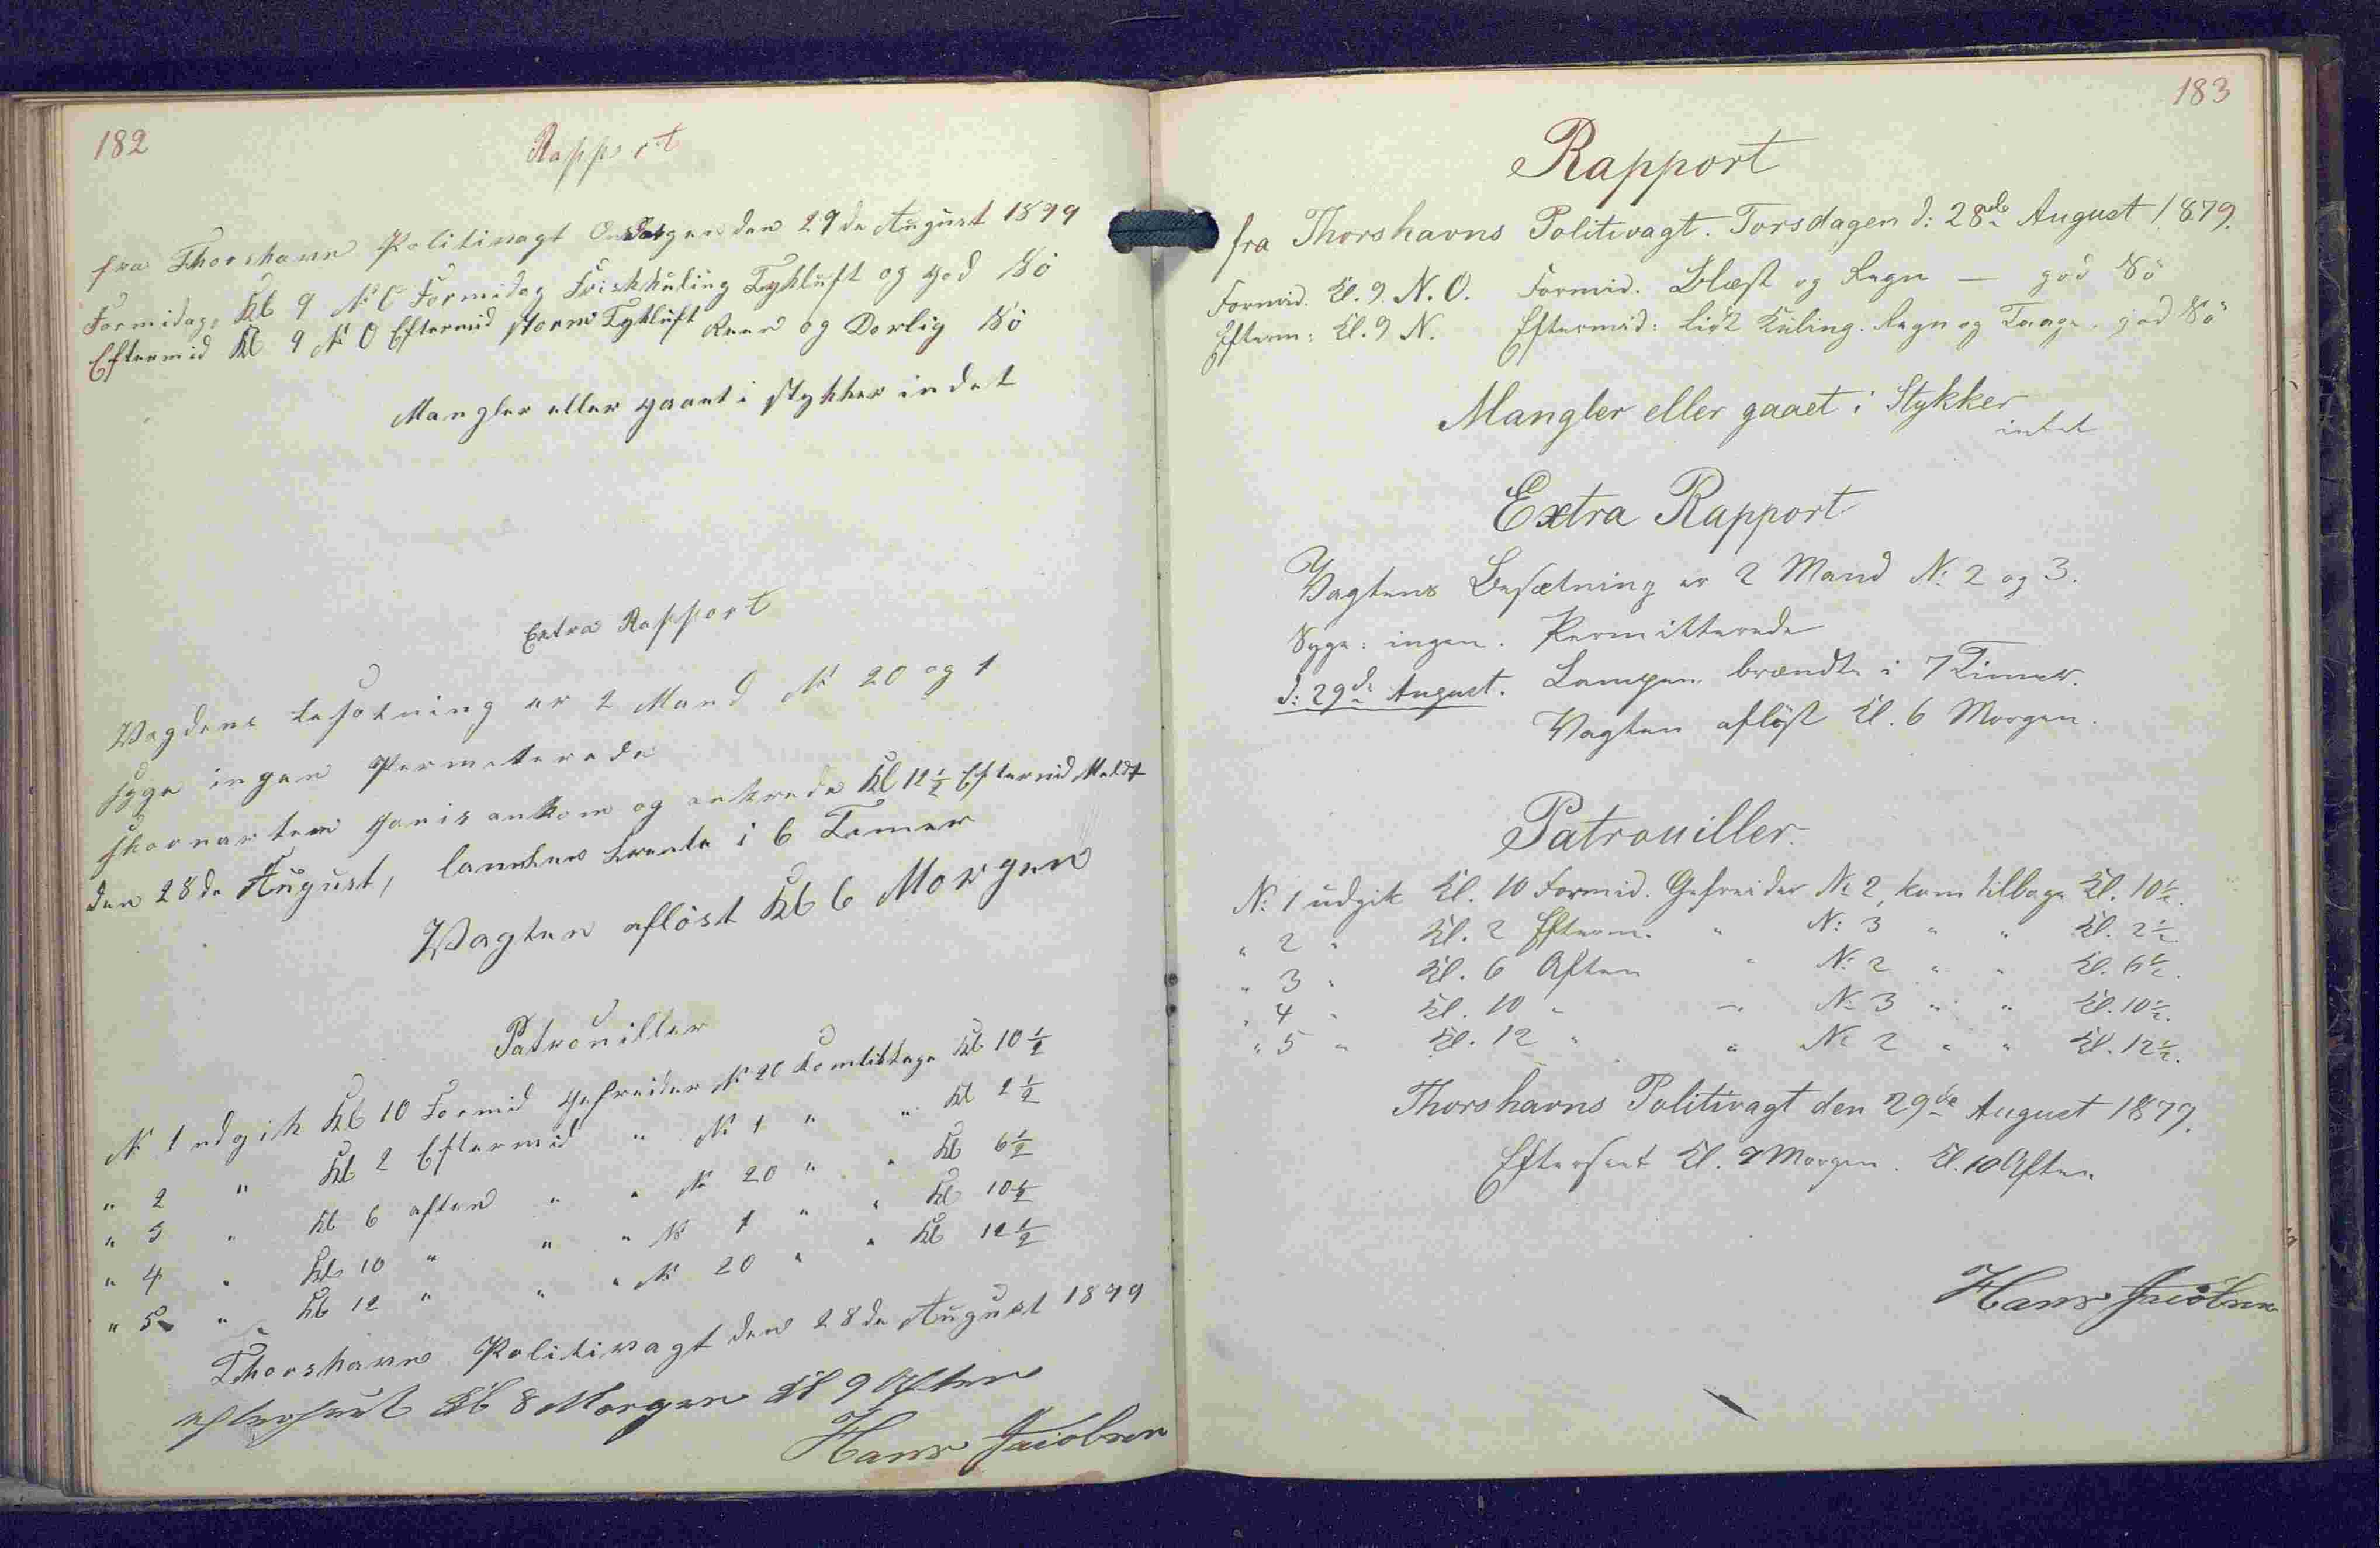 182
Rapport
fra Thorshavn Politivagt Onsdagen den 27de August 1879
Formidag. Kl 9 N O Formidag Friskkuling Tykluft og god Sö
Eftermid Kl 9 N O Eftermid storm Tykluft Reen og Dorlig Sö
Mangler eller gaaet i stykker indet
Extra Rapport
Vagdens besotning er 2 Mand No 20 og 1
syge ingen Permeterede
skonnarten ankom og ankrede Kl 12 1/2 Eftermid Meldt
den 28de August, lamben brente i 6 Temer
Vagten aflöst Kl 6 Morgen
Patrouiller
No 1 udgik Kl 10 Formid Gefreider No 20 komtilbage Kl 10 1/2
" 2 " Kl 2 Eftermid " No 1 " " Kl 2 1/2
" 3 " Kl 6 aften " " No 20 " " Kl 6 1/2
" 4 " Kl 10 " " " No 1 " " Kl 10 1/2
" 5 " Kl 12 " " " No 20 " " Kl 12 1/2
Thorshavn Politivagt den 28de August 1879
efterseet Kl 8 Morgen Kl 9 Aften
Hans Jacobsen
183
Rapport
fra Thorshavns Politivagt. Torsdagen d: 28de August 1879.
Formid. Kl. 9. N. O. Formid. Blæst og Regn — god Sö
Efterm: Kl. 9 N. Eftermid: Lidt Kuling. Regn og Taage. god Sö
Mangler eller gaaet i Stykker
intet
Extra Rapport
Vagtens Besætning er 2 Mand No 2 og 3.
Syge: ingen. Permitterede
d: 29de August. Lampen brændte i 7 Timer.
Vagten aflöst Kl. 6 Morgen.
Patrouiller.
No 1 udgik Kl. 10 Formid. Gefreider No 2, kom tilbage Kl. 10 1/2.
" 2 " Kl. 2 Efterm. " No 3 " " Kl. 2 1/2
" 3 " Kl. 6 Aften " No 2 " " Kl. 6 1/2.
" 4 " Kl. 10 " — No 3 " " Kl. 10 1/2.
" 5 " Kl. 12 " " No 2 " " Kl. 12 1/2.
Thorshavns Politivagt den 29de August 1879.
Efterseet Kl. 9 Morgen. Kl. 10 Aften
Hans Jacobsen